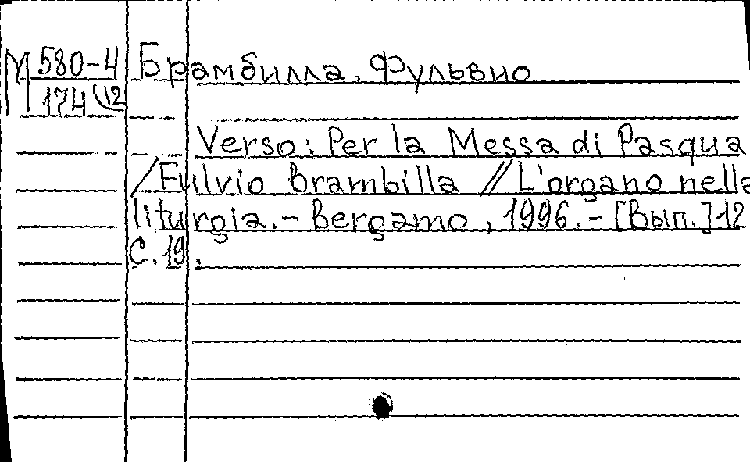 М 580-4 Брамбилла, Фульвио
174 (12
Verso: Per la Messa di Pasqua
/Fulvio Brambilla // L'organo nella
liturgia. - Bergamo, 1996. - [Вып.] 12
С. 19.